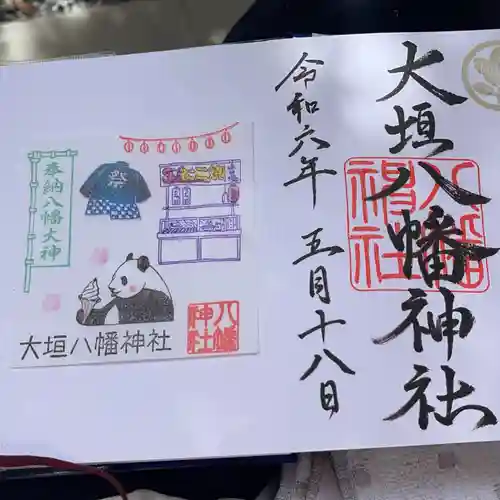 大垣八幡神社
八幡
神社
令和六年 五月十八日
奉納八幡大神
祭
大垣八幡神社
八幡
神社